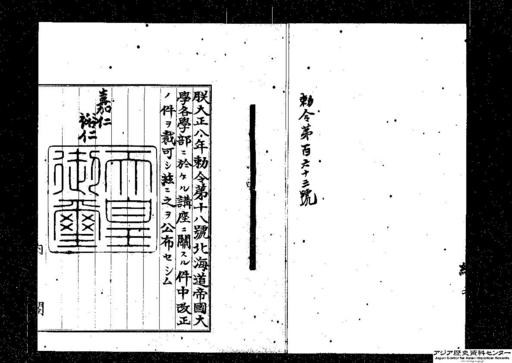 勅令第百六十三號
朕大正八年勅令第十八號北海道帝國大
學各學部ニ於ケル講座ニ關スル件中改正
ノ件ヲ裁可シ玆ニ之ヲ公布セシム
嘉仁
裕仁
天皇
御璽
内閣
アジア歴史資料センター
Japan Center for Asian Historical Records